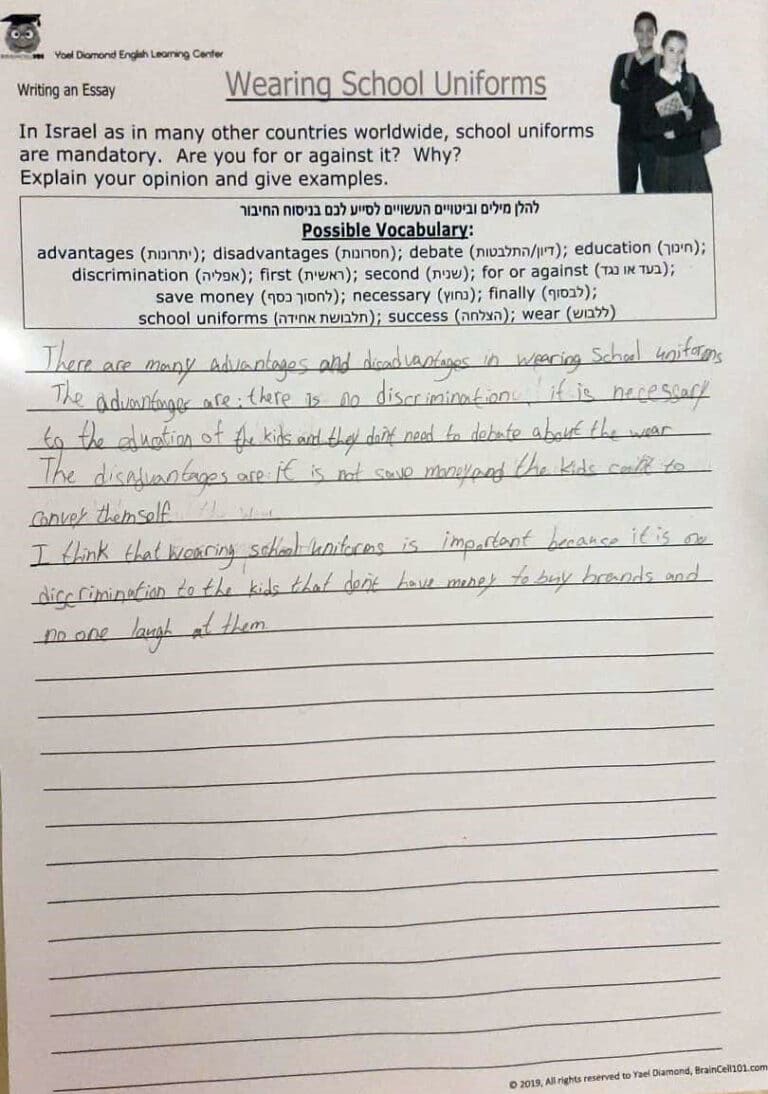 Yael Diamond English Learning Center
Writing an Essay
Wearing School Uniforms
In Israel as in many other countries worldwide, school uniforms
are mandatory. Are you for or against it? Why?
Explain your opinion and give examples.
להלן מילים וביטויים העשויים לסייע לכם בניסוח החיבור
Possible Vocabulary:
advantages (יתרונות); disadvantages (חסרונות); debate (דיון/התלבטות); education (חינוך);
discrimination (אפליה); first (ראשית); second (שנית); for or against (בעד או נגד);
save money (לחסוך כסף); necessary (נחוץ); finally (לבסוף);
school uniforms (תלבושת אחידה); success (הצלחה); wear (ללבוש)
There are many advantages and disadvantages in wearing School uniforms
The advantages are: there is no discrimination, it is necessary
to the eduation of the kids and they don't need to debate about the wear
The disadvantages are: it is not save money and the kids can't to
convey themself
I think that wearing school uniforms is important because it is no
discrimination to the kids that don't have money to buy brands and
no one laugh at them
© 2019, All rights reserved to Yael Diamond, BrainCell101.com